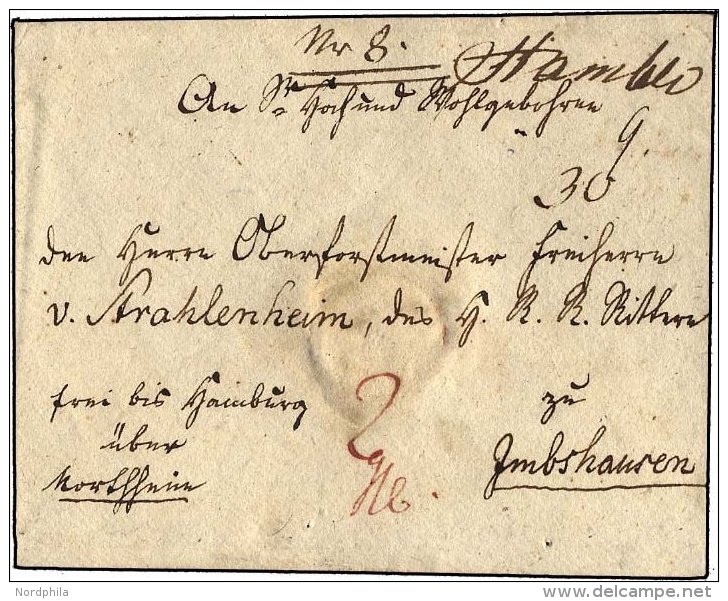 Nr 8.
Hambro
An Sr Hoch und Wohlgebohren
9.
30
den Herrn Oberforstmeister Freiherrn
v. Strahlenheim, des H. R. R. Rittern
frei bis Hamburg
zu
über
Imbshausen
Northheim
2
Nordphila
© www.delcampe.net